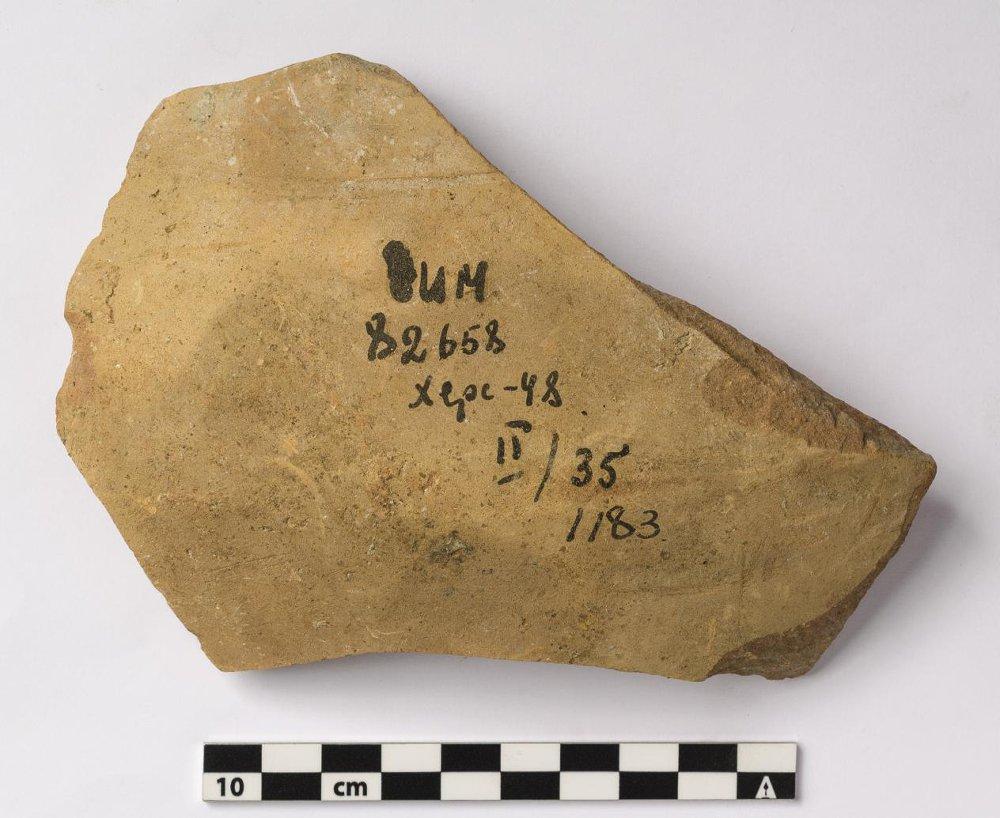 ИМ
82658
Херс-48.
II/35
1183.
10 cm